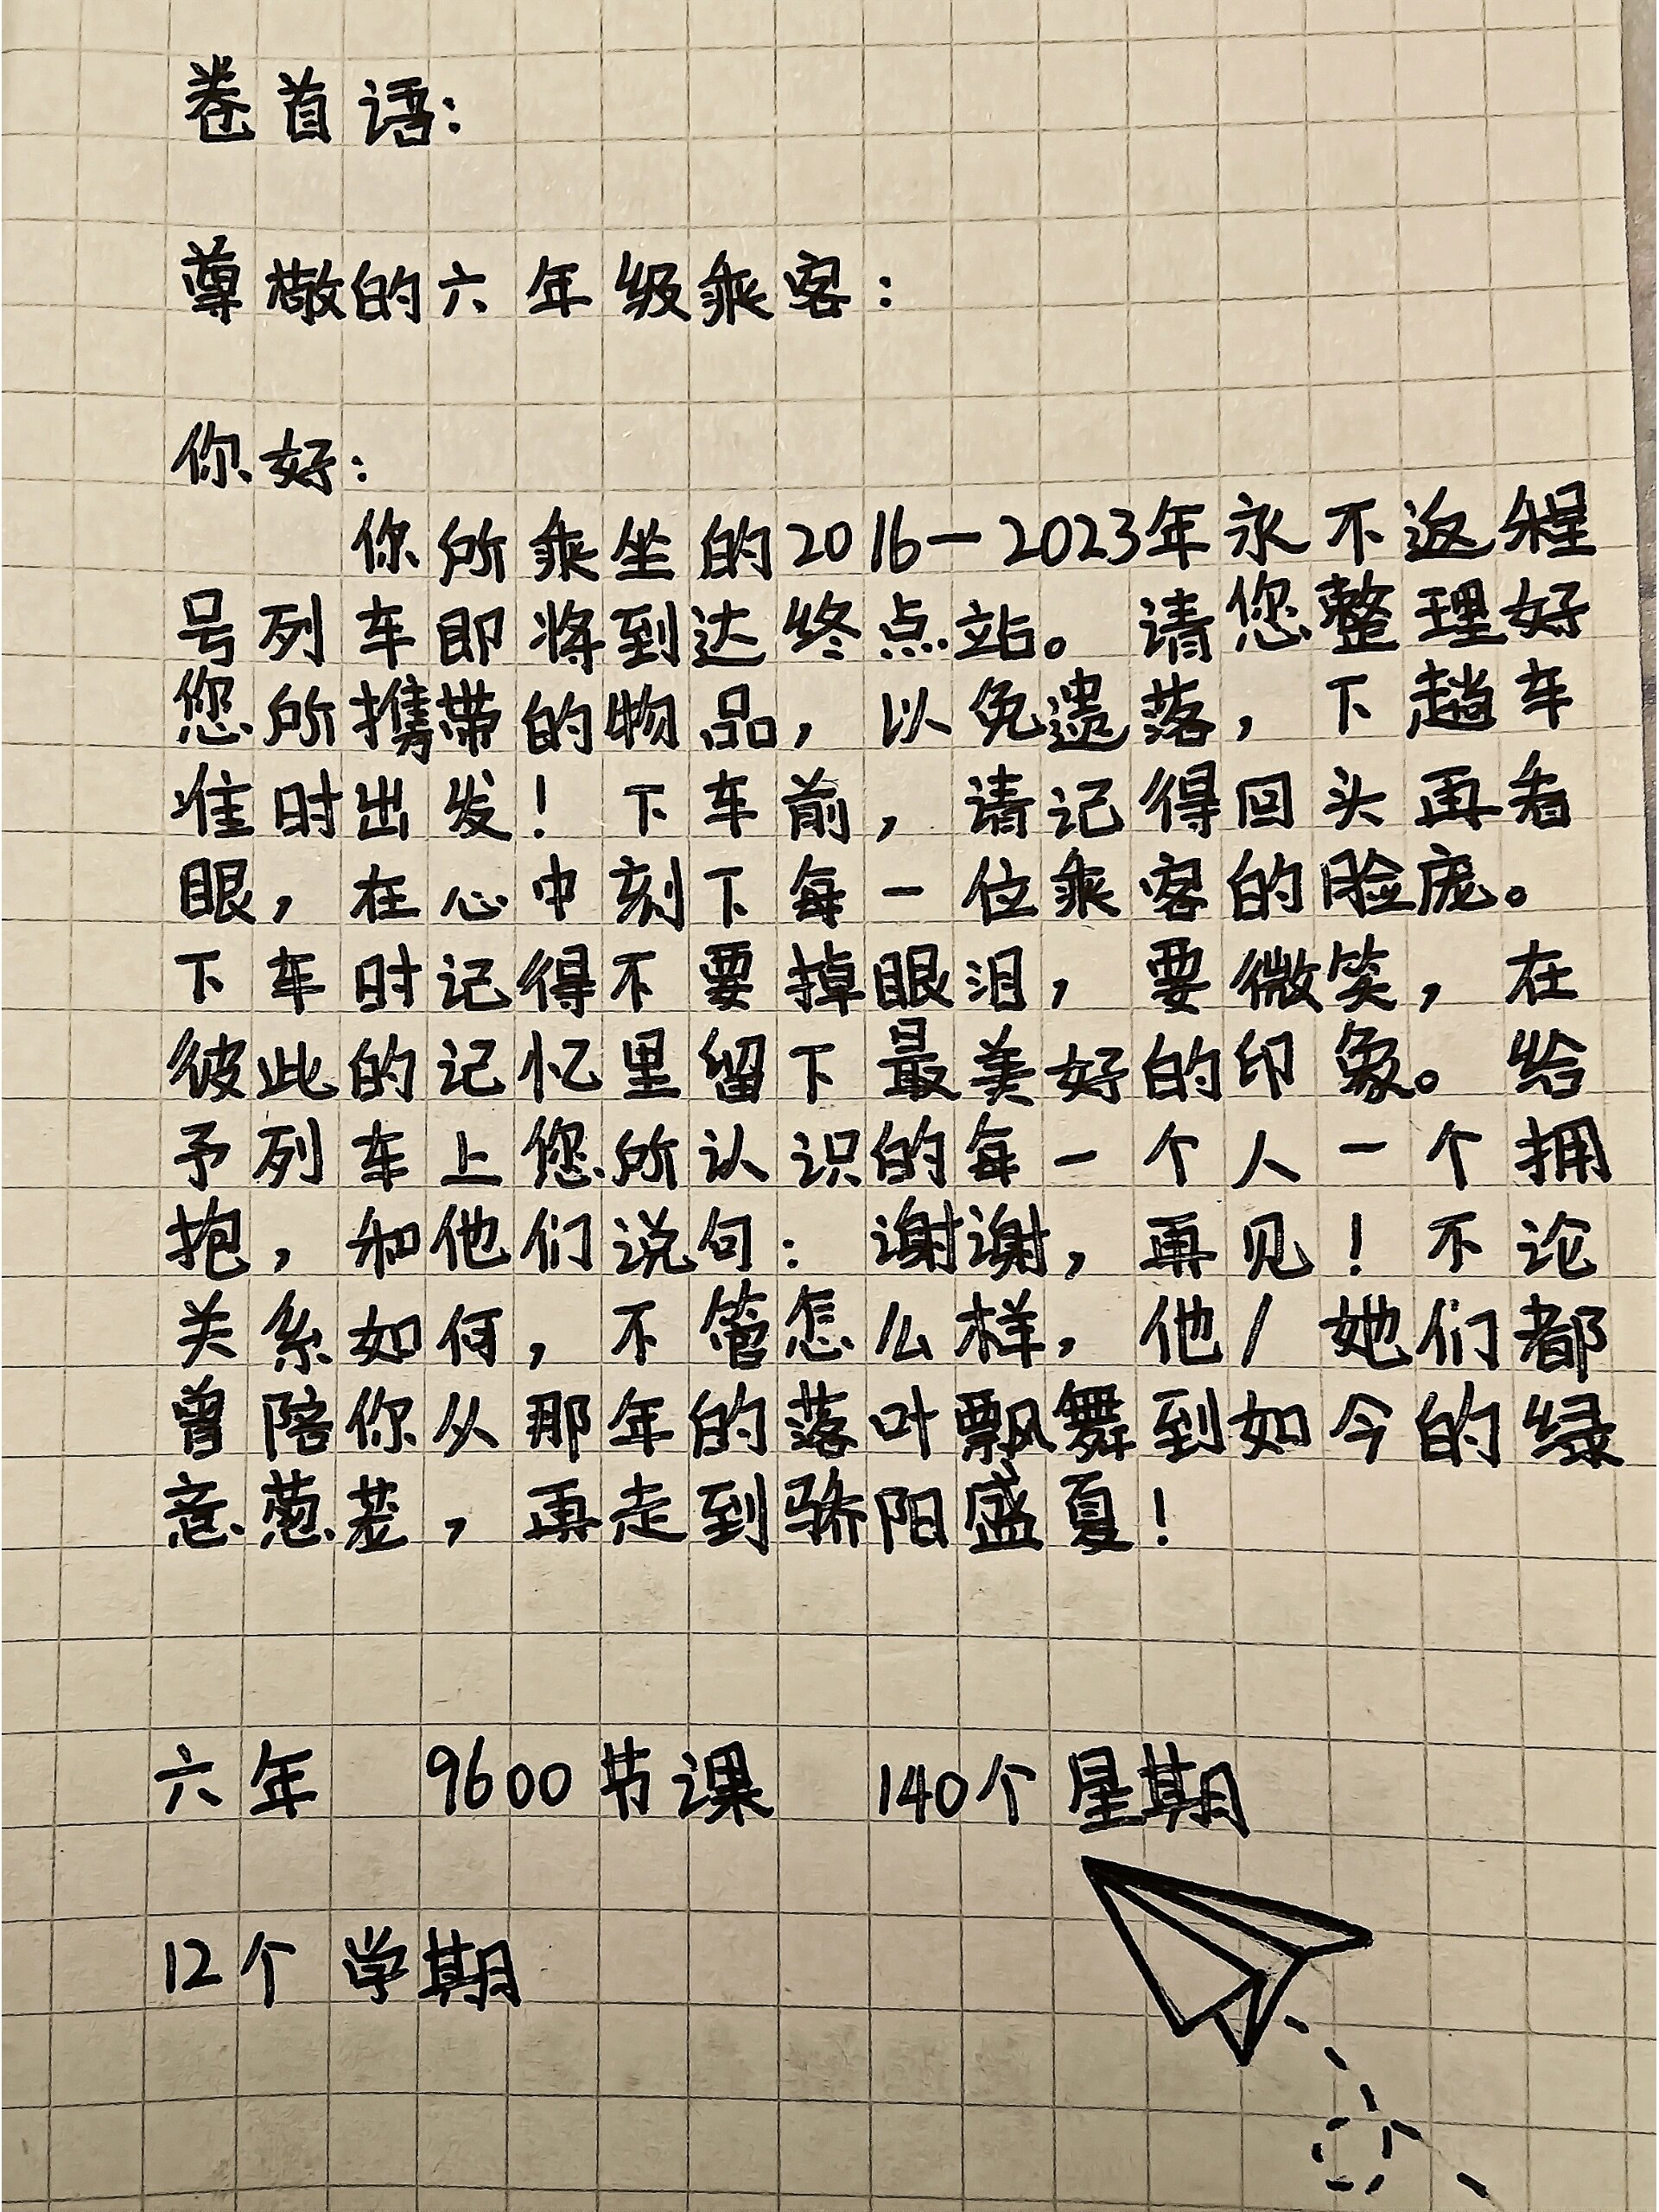 卷首语：
尊敬的六年级乘客：
你好：
你所乘坐的2016-2023年永不返程
号列车即将到达终点站。请您整理好
您所携带的物品，以免遗落，下趟车
准时出发！下车前，请记得回头再看
眼，在心中刻下每一位乘客的脸庞。
下车时记得不要掉眼泪，要微笑，在
彼此的记忆里留下最美好的印象。给
予列车上您所认识的每一个人一个拥
抱，和他们说句：谢谢，再见！不论
关系如何，不管怎么样，他/她们都
曾陪你从那年的落叶飘舞到如今的绿
意葱茏，再走到骄阳盛夏！
六年 9600节课 140个星期
12个学期